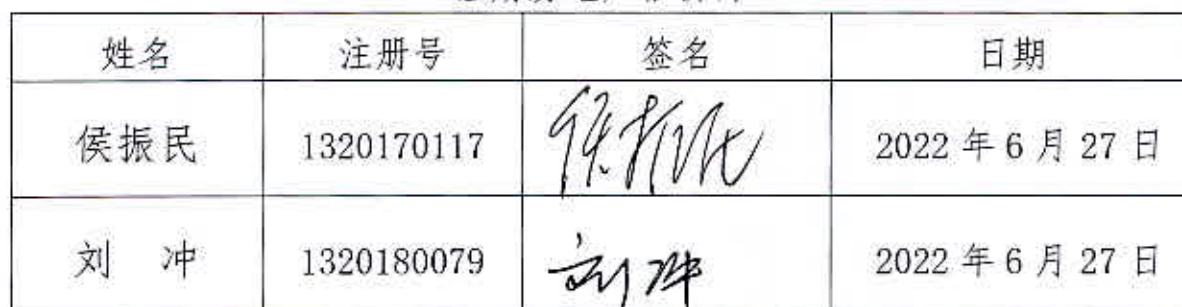 姓名 注册号 签名 日期
侯振民 1320170117 侯振民 2022年6月27日
刘 冲 1320180079 刘冲 2022年6月27日